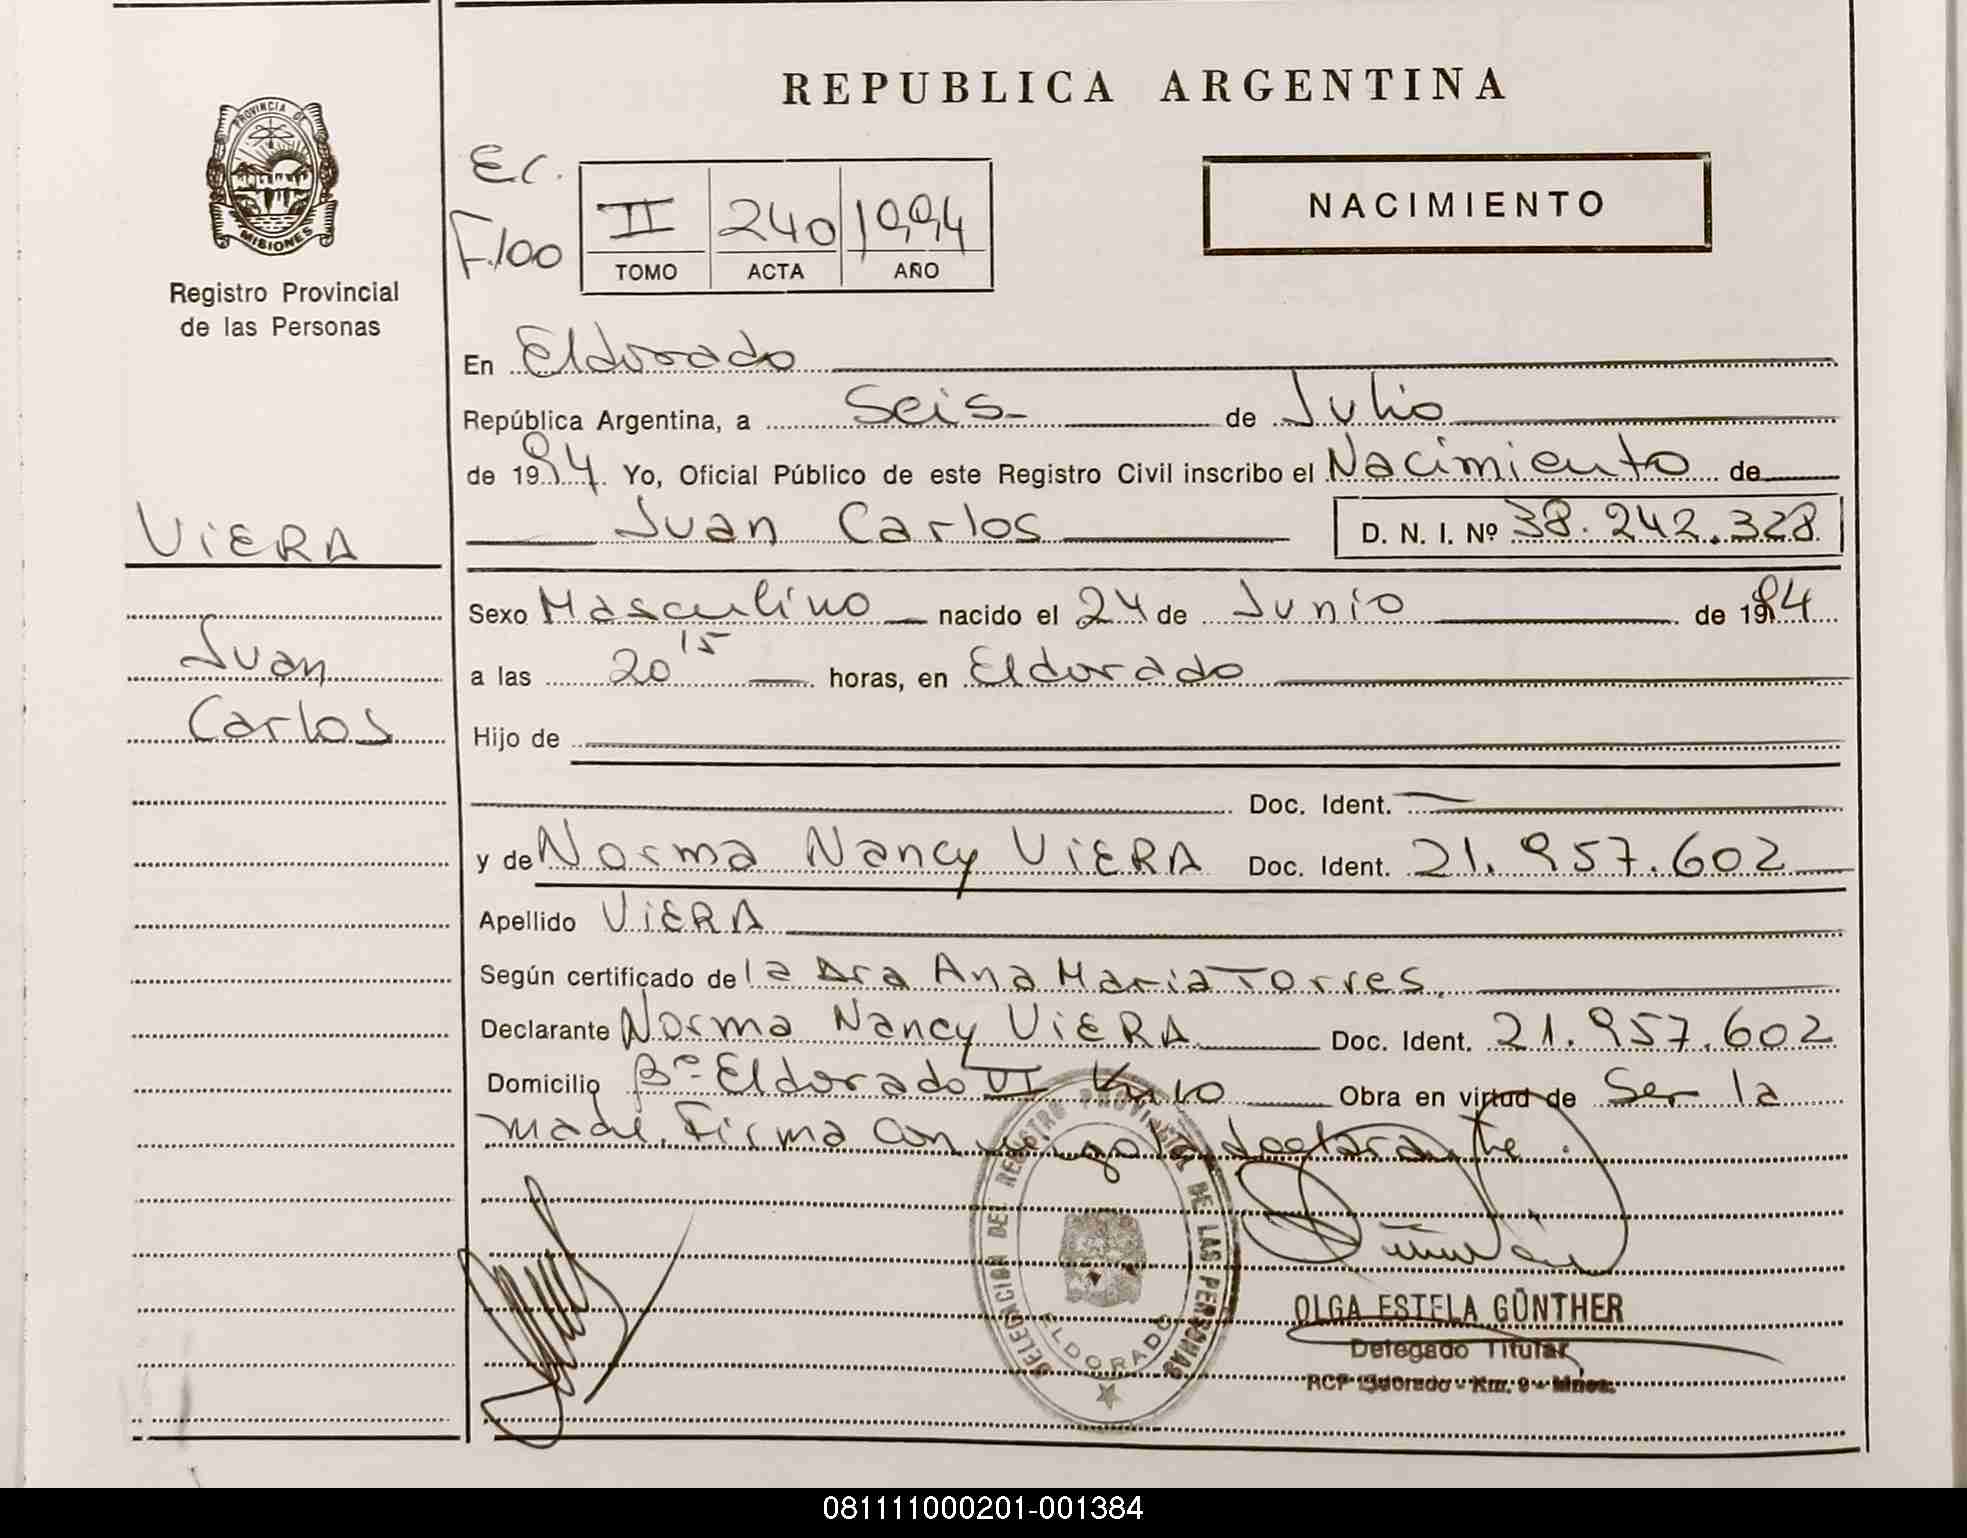 REPUBLICA ARGENTINA
PROVINCIA DE
MISIONES
Registro Provincial
de las Personas
E.C.
F.100
II 240 1994
TOMO ACTA AÑO
NACIMIENTO
En Eldorado
República Argentina, a Seis de Julio
de 1994 Yo, Oficial Público de este Registro Civil inscribo el Nacimiento de
Juan Carlos D. N. I. Nº 38.242.328
VIERA
Juan
Carlos
Sexo Masculino nacido el 24 de Junio de 1994
a las 20 15 horas, en Eldorado
Hijo de
Doc. Ident.
y de Norma Nancy VIERA Doc. Ident. 21.957.602
Apellido VIERA
Según certificado de la Dra Ana Maria Torres.
Declarante Norma Nancy VIERA Doc. Ident. 21.957.602
Domicilio Bº Eldorado VI Km 10 Obra en virtud de Ser la
madre. Firma con migo la declarante.
DELEGACION DEL REGISTRO PROVINCIAL DE LAS PERSONAS
ELDORADO
OLGA ESTELA GÜNTHER
Delegado Titular
RCP Eldorado - Km. 9 - Mnes.
081111000201-001384